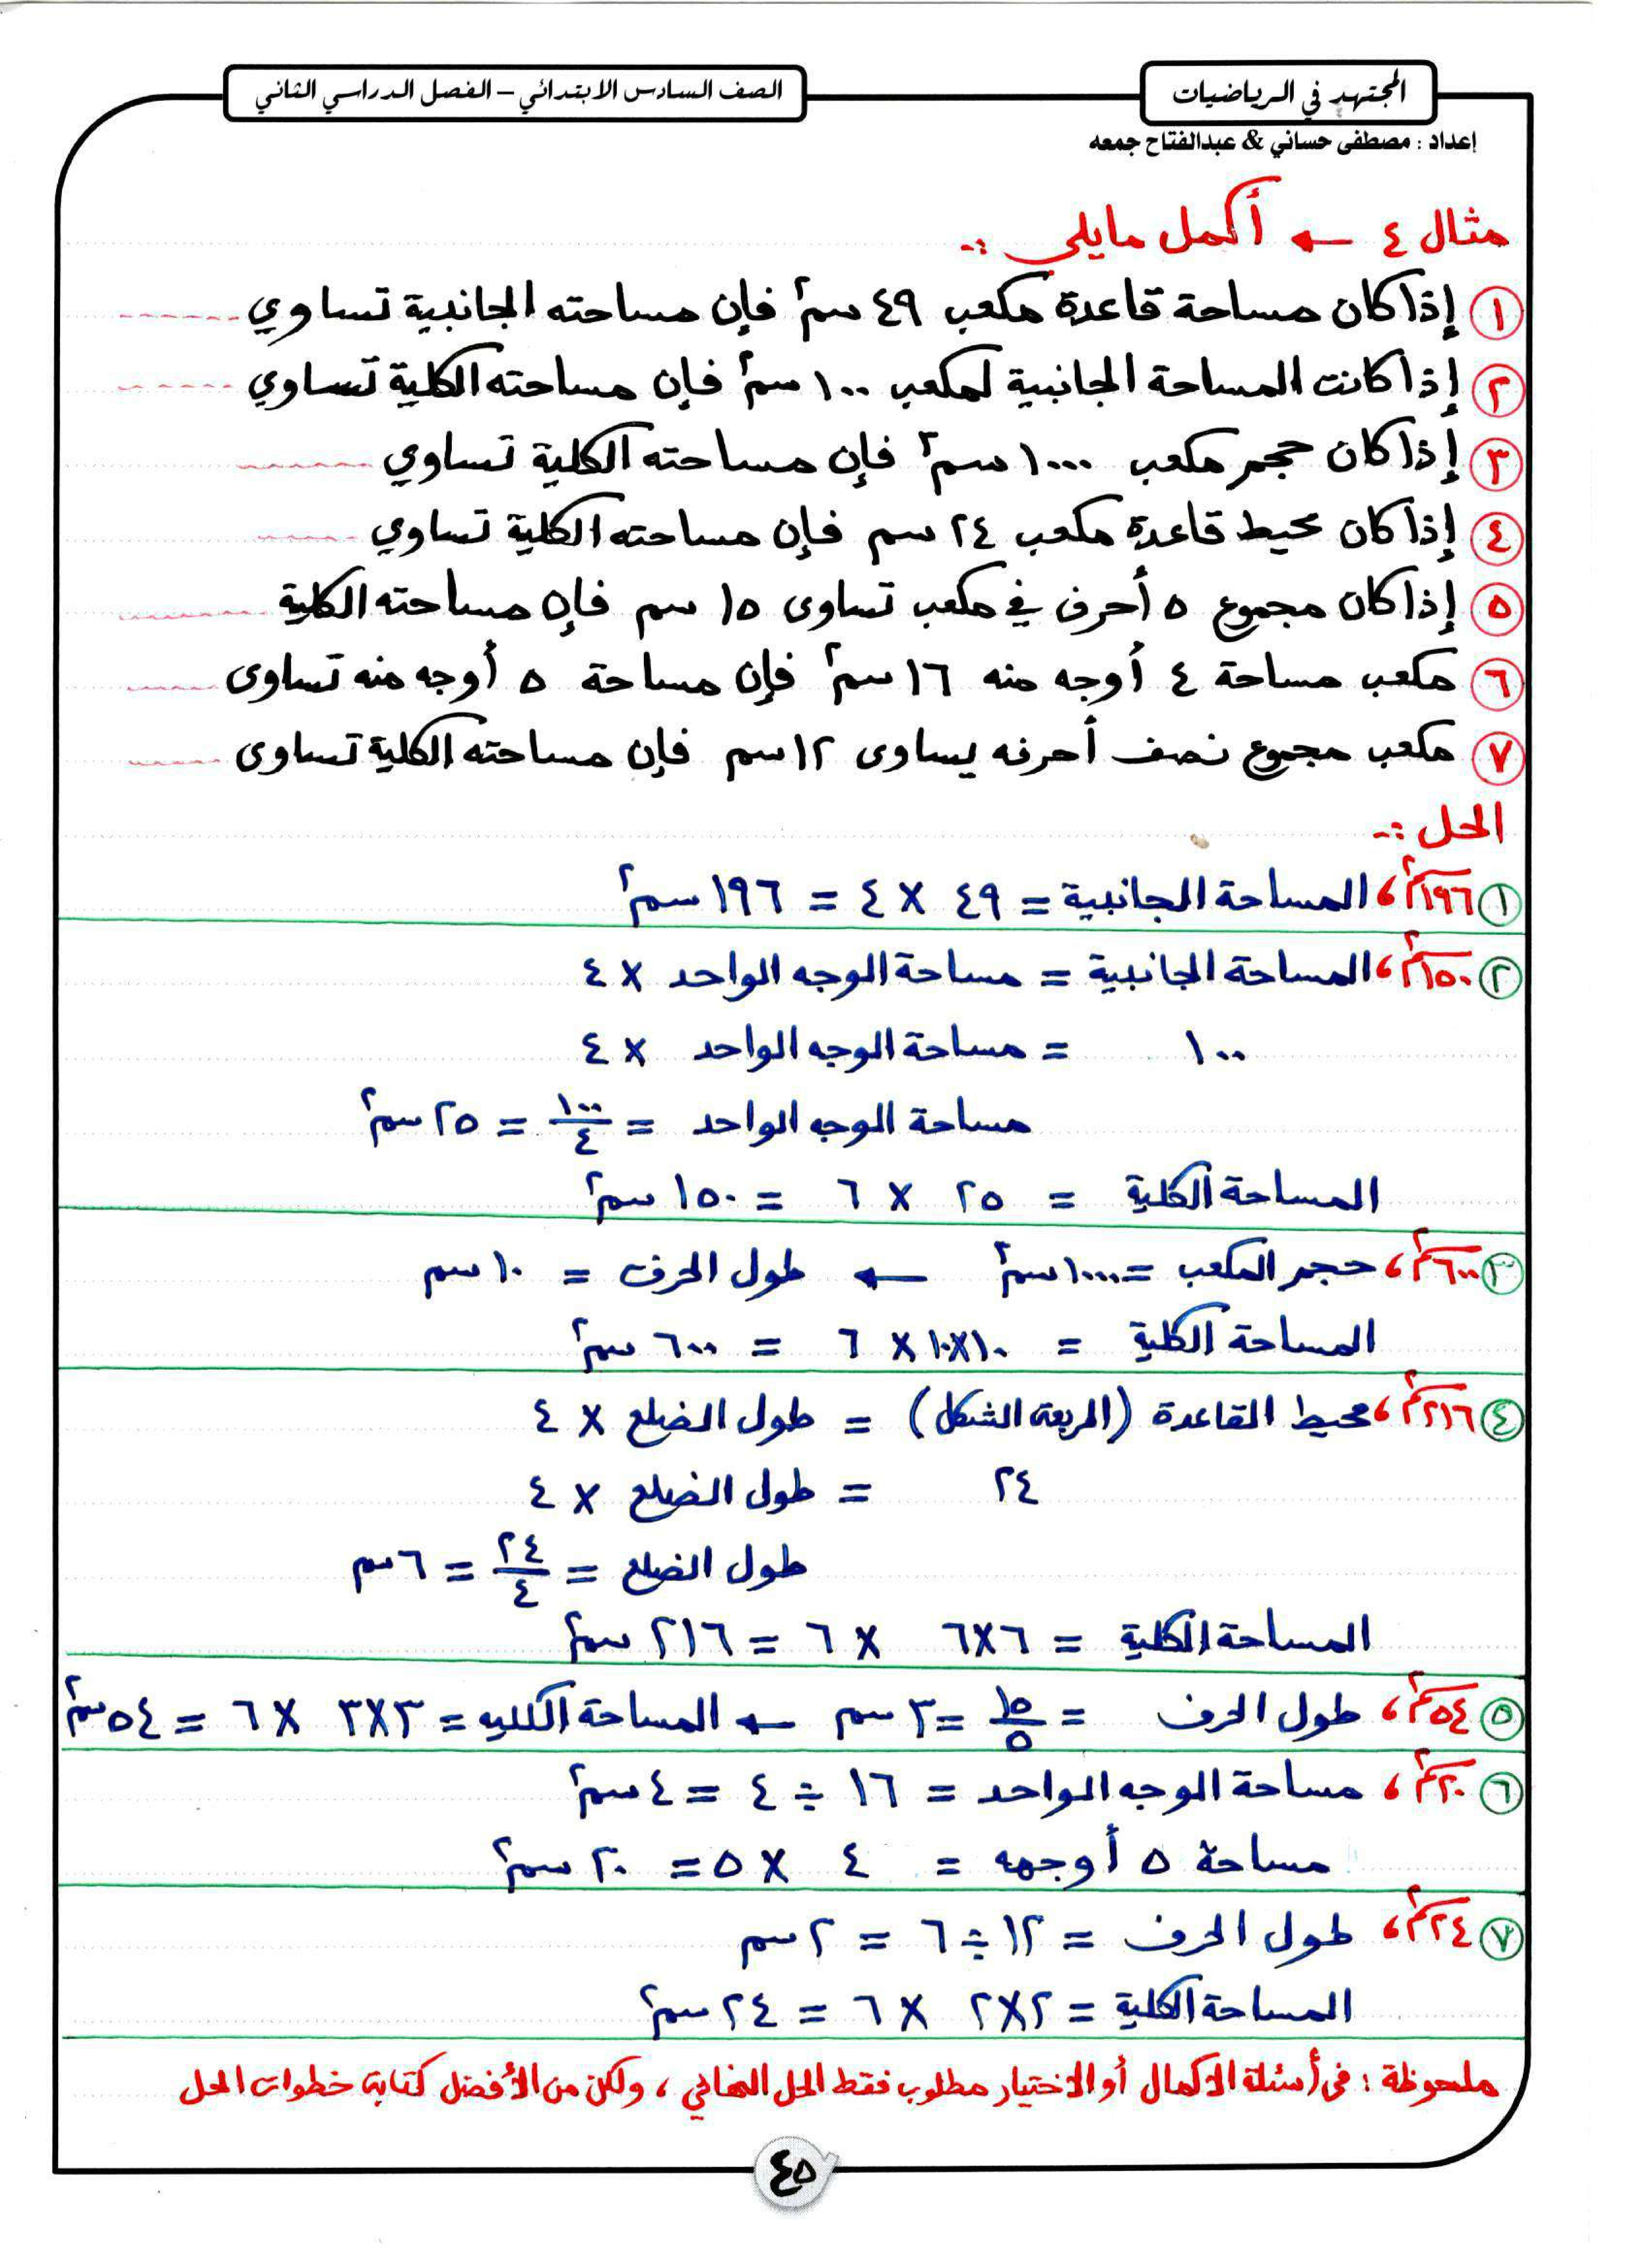 المجتهد في الرياضيات
الصف السادس الابتدائي – الفصل الدراسي الثاني
إعداد : مصطفى حساني & عبدالفتاح جمعه
مثال ٤ ← أكمل مايلي :-
١ إذا كان مساحة قاعدة مكعب ٤٩ سم٢ فإن مساحته الجانبية تساوي ------
٢ إذا كانت المساحة الجانبية لمكعب ١٠٠ سم٢ فإن مساحته الكلية تساوي ------
٣ إذا كان حجم مكعب ١٠٠٠ سم٣ فإن مساحته الكلية تساوي ------
٤ إذا كان محيط قاعدة مكعب ٢٤ سم فإن مساحته الكلية تساوي ------
٥ إذا كان مجموع ٥ أحرف في مكعب تساوى ١٥ سم فإن مساحته الكلية ------
٦ مكعب مساحة ٤ أوجه منه ١٦ سم٢ فإن مساحة ٥ أوجه منه تساوى ------
٧ مكعب مجموع نصف أحرفه يساوى ١٢ سم فإن مساحته الكلية تساوى ------
الحل :-
١ ١٩٦سم٢ ، المساحة الجانبية = ٤٩ × ٤ = ١٩٦ سم٢
٢ ١٥٠سم٢ ، المساحة الجانبية = مساحة الوجه الواحد × ٤
١٠٠ = مساحة الوجه الواحد × ٤
مساحة الوجه الواحد = ١٠٠/٤ = ٢٥ سم٢
المساحة الكلية = ٢٥ × ٦ = ١٥٠ سم٢
٣ ٦٠٠سم٢ ، حجم المكعب = ١٠٠٠ سم٣ ← طول الحرف = ١٠ سم
المساحة الكلية = ١٠×١٠ × ٦ = ٦٠٠ سم٢
٤ ٢١٦سم٢ ، محيط القاعدة (المربعة الشكل) = طول الضلع × ٤
٢٤ = طول الضلع × ٤
طول الضلع = ٢٤/٤ = ٦ سم
المساحة الكلية = ٦×٦ × ٦ = ٢١٦ سم٢
٥ ٥٤سم٢ ، طول الحرف = ١٥/٥ = ٣ سم ← المساحة الكلليه = ٣×٣ × ٦ = ٥٤ سم٢
٦ ٢٠سم٢ ، مساحة الوجه الواحد = ١٦ ÷ ٤ = ٤ سم٢
مساحة ٥ أوجهه = ٤ × ٥ = ٢٠ سم٢
٧ ٢٤سم٢ ، طول الحرف = ١٢ ÷ ٦ = ٢ سم
المساحة الكلية = ٢×٢ × ٦ = ٢٤ سم٢
ملحوظة : فى أسئلة الاكمال أو الاختيار مطلوب فقط الحل النهائي ، ولكن من الأفضل كتابة خطوات الحل
٤٥